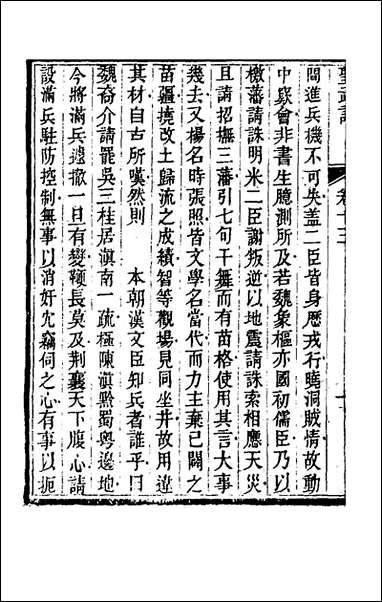 聖武記
卷十三
闗進兵機不可失盖二臣皆身歷戎行曉洞賊情故動
中窾會非書生臆測所及若魏象樞亦國初儒臣乃以
檄藩請誅明米二臣謝叛逆以地震請誅索相應天災
且請招撫三藩引七旬干舞而有苗格使用其言大事
幾去又楊名時張照皆文學名當代而力主棄已闢之
苗疆撓改土歸流之成績智等觀塲見同坐井故用違
其材自古所嘆然則 本朝漢文臣知兵者誰乎曰
魏裔介請罷吳三桂居滇南一疏極陳滇黔蜀粤邊地
今將滿兵遽撤一旦有變鞭長莫及荆襄天下腹心請
設滿兵駐防控制無事以消奸宄窺伺之心有事以扼